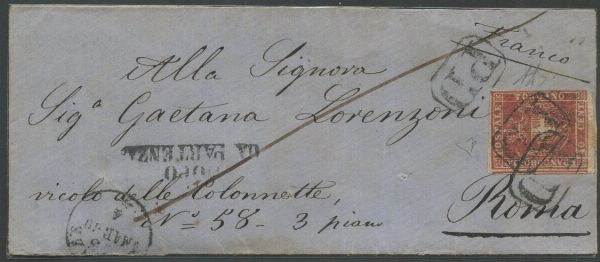 Franco
PD
Alla Signora
Sigª Gaetana Lorenzoni
DOPO
LA PARTENZA
vicolo delle Colonnette,
Nº 58 - 3 piano
Roma
MAR